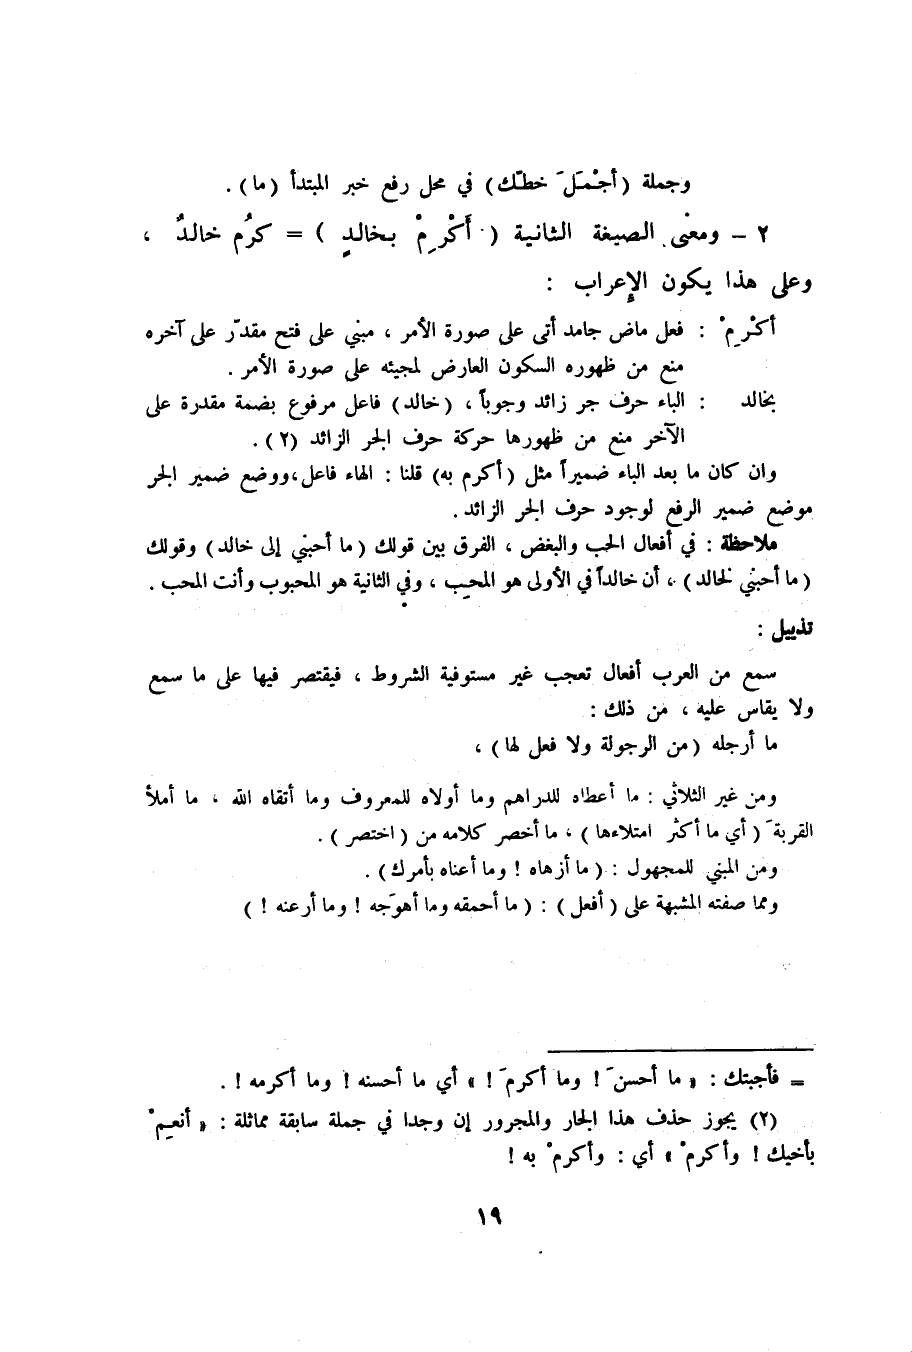 وجملة (أجْمَلَ خطّك) في محل رفع خبر المبتدأ (ما).
٢ – ومعنى الصيغة الثانية ( أَكْرِمْ بخالدٍ ) = كرُم خالدٌ ،
وعلى هذا يكون الإعراب :
أكْرِمْ : فعل ماض جامد أتى على صورة الأمر ، مبني على فتح مقدّر على آخره
منع من ظهوره السكون العارض لمجيئه على صورة الأمر .
بخالد : الباء حرف جر زائد وجوباً ، (خالد) فاعل مرفوع بضمة مقدرة على
الآخر منع من ظهورها حركة حرف الجر الزائد (٢) .
وان كان ما بعد الباء ضميراً مثل (أكرم به) قلنا : الهاء فاعل،ووضع ضمير الجر
موضع ضمير الرفع لوجود حرف الجر الزائد .
ملاحظة : في أفعال الحب والبغض ، الفرق بين قولك (ما أحبني إلى خالد) وقولك
(ما أحبني لخالد) ، أن خالداً في الأولى هو المحب ، وفي الثانية هو المحبوب وأنت المحب .
تذييل :
سمع من العرب أفعال تعجب غير مستوفية الشروط ، فيقتصر فيها على ما سمع
ولا يقاس عليه ، من ذلك :
ما أرجله (من الرجولة ولا فعل لها) ،
ومن غير الثلاثي : ما أعطاه للدراهم وما أولاه للمعروف وما أتقاه الله ، ما أملأ
القربةَ ( أي ما أكثر امتلاءها ) ، ما أخصر كلامه من ( اختصر ) .
ومن المبني للمجهول : ( ما أزهاه ! وما أعناه بأمرك) .
ومما صفته المشبهة على ( أفعل ) : ( ما أحمقه وما أهوَجه ! وما أرعنه ! )
= فأجبتك : « ما أحسنَ ! وما أكرمَ ! » أي ما أحسنه ! وما أكرمه ! .
(٢) يجوز حذف هذا الجار والمجرور إن وجدا في جملة سابقة مماثلة : « أنعِمْ
بأخيك ! وأكرمْ » أي : وأكرمْ به !
١٩